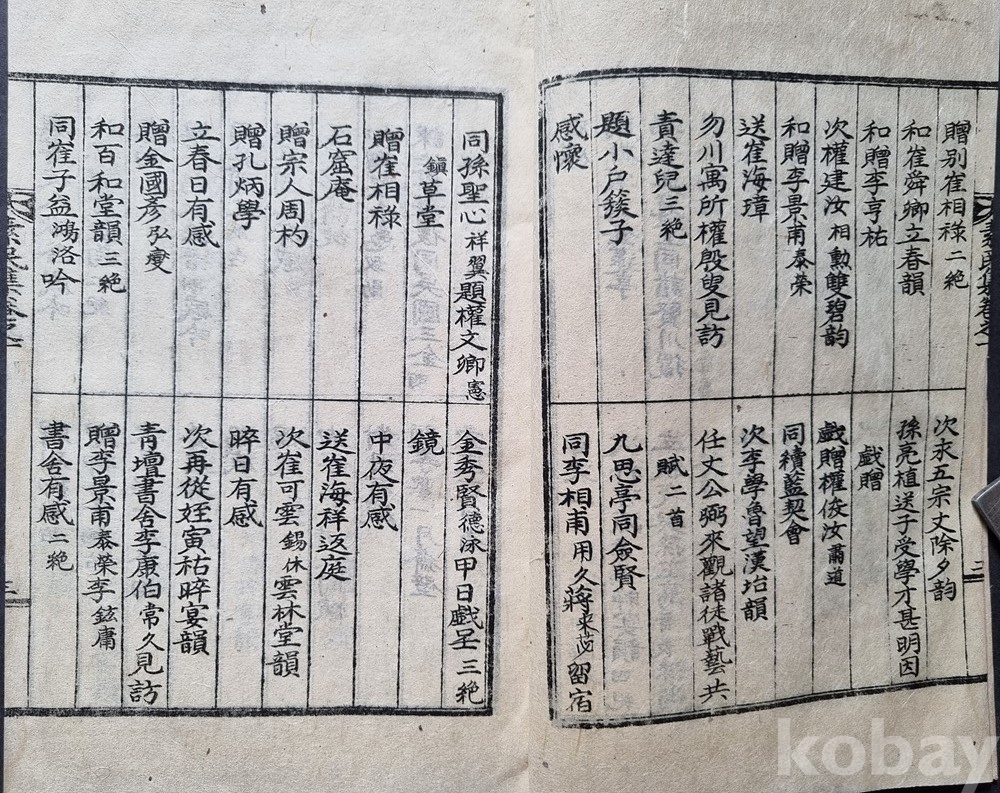 贈別崔相祿二絶
和崔舜卿立春韻
和贈李亨祐
次權建汝相勲雙碧韵
和贈李景甫泰榮
送崔海璋
勿川寓所權殷叟見訪
責達兒三絶
題小戶簇子
感懷
次永五宗丈除夕韵
孫亮植送子受學才甚明因
戱贈
戱贈權俊汝道
同續藍契會
次李學魯望漢坮韻
任丈公弼來觀諸徒戰藝共
賦二首
九思亭同僉賢
同李相甫用久蔣來苾留宿
二
同孫聖心祥翼題權文卿憲
鎭草堂
贈崔相祿
石窟庵
贈宗人周杓
贈孔炳學
立春日有感
贈金國彦弘燮
和百和堂韻三絶
同崔子益鴻洛吟
金秀賢德泳甲日戱呈三絶
鏡
中夜有感
送崔海稱返庭
次崔可雲錫休雲林堂韻
晬日有感
次再從姪寅祐晬宴韻
靑壇書舍李康伯常久見訪
贈李景甫泰榮李鉉庸
書舍有感二絶
三
kobay